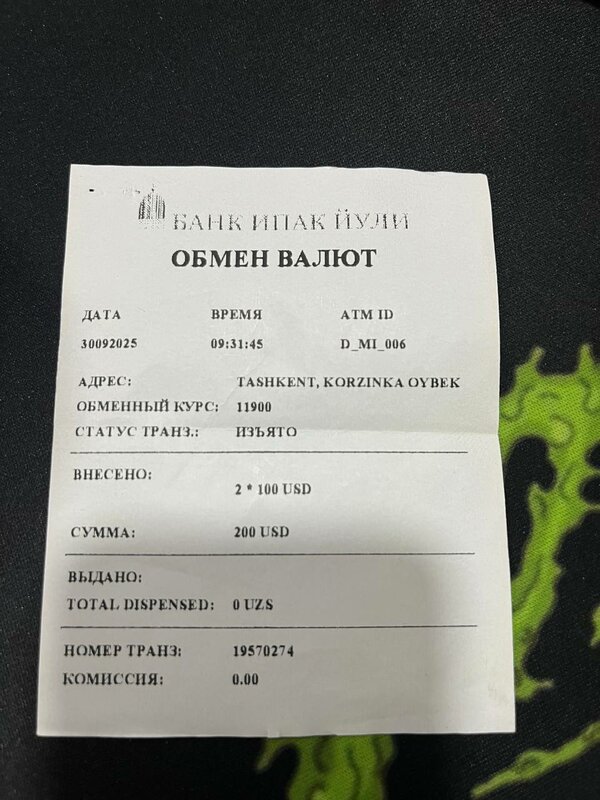 БАНК ИПАК ЙУЛИ
ОБМЕН ВАЛЮТ
ДАТА ВРЕМЯ ATM ID
30092025 09:31:45 D_MI_006
АДРЕС: TASHKENT, KORZINKA OYBEK
ОБМЕННЫЙ КУРС: 11900
СТАТУС ТРАНЗ.: ИЗЪЯТО
ВНЕСЕНО:
2 * 100 USD
СУММА: 200 USD
ВЫДАНО:
TOTAL DISPENSED: 0 UZS
НОМЕР ТРАНЗ: 19570274
КОМИССИЯ: 0.00